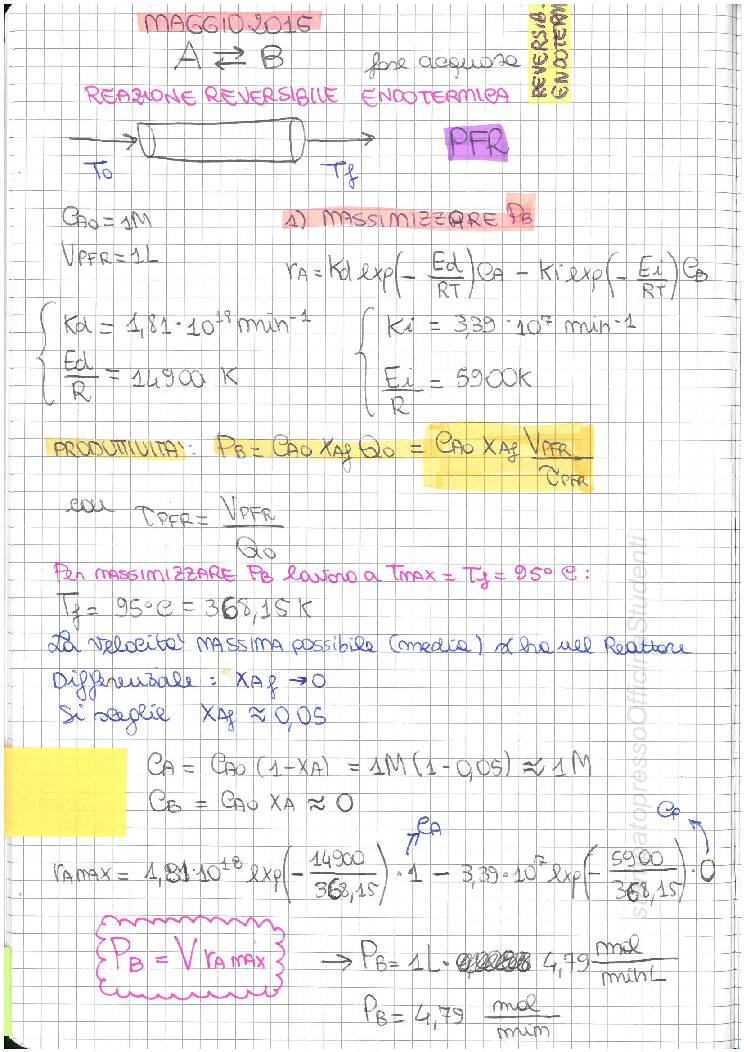 MAGGIO 2015
A ⇄ B fase acquosa
REVERSIB.
ENDOTERM
REAZIONE REVERSIBILE ENDOTERMICA
T0 Tf PFR
CA0 = 1M 1) MASSIMIZZARE PB
VPFR = 1L
rA = Kd exp(- Ed/RT) CA - Ki exp(- Ei/RT) CB
Kd = 1,81·10^18 min^-1 Ki = 3,39·10^7 min^-1
Ed/R = 14900 K Ei/R = 5900K
PRODUTTIVITA': PB = CA0 XAf Q0 = CA0 XAf VPFR/τPFR
con τPFR = VPFR/Q0
Per MASSIMIZZARE PB lavoro a TMAX = Tf = 95°C:
Tf = 95°C = 368,15 K
La velocità MASSIMA possibile (media) si ha nel Reattore
Differenziale: XAf → 0
Si sceglie XAf ≈ 0,05
CA = CA0 (1-XA) = 1M (1-0,05) ≈ 1M
CB = CA0 XA ≈ 0
CA CB
rAMAX = 1,81·10^18 exp(- 14900/368,15)·1 - 3,39·10^7 exp(- 5900/368,15)·0
PB = V rAMAX → PB = 1L· 4,79 mol/min L
PB = 4,79 mol/min
stampatopressoOfficineStudenti